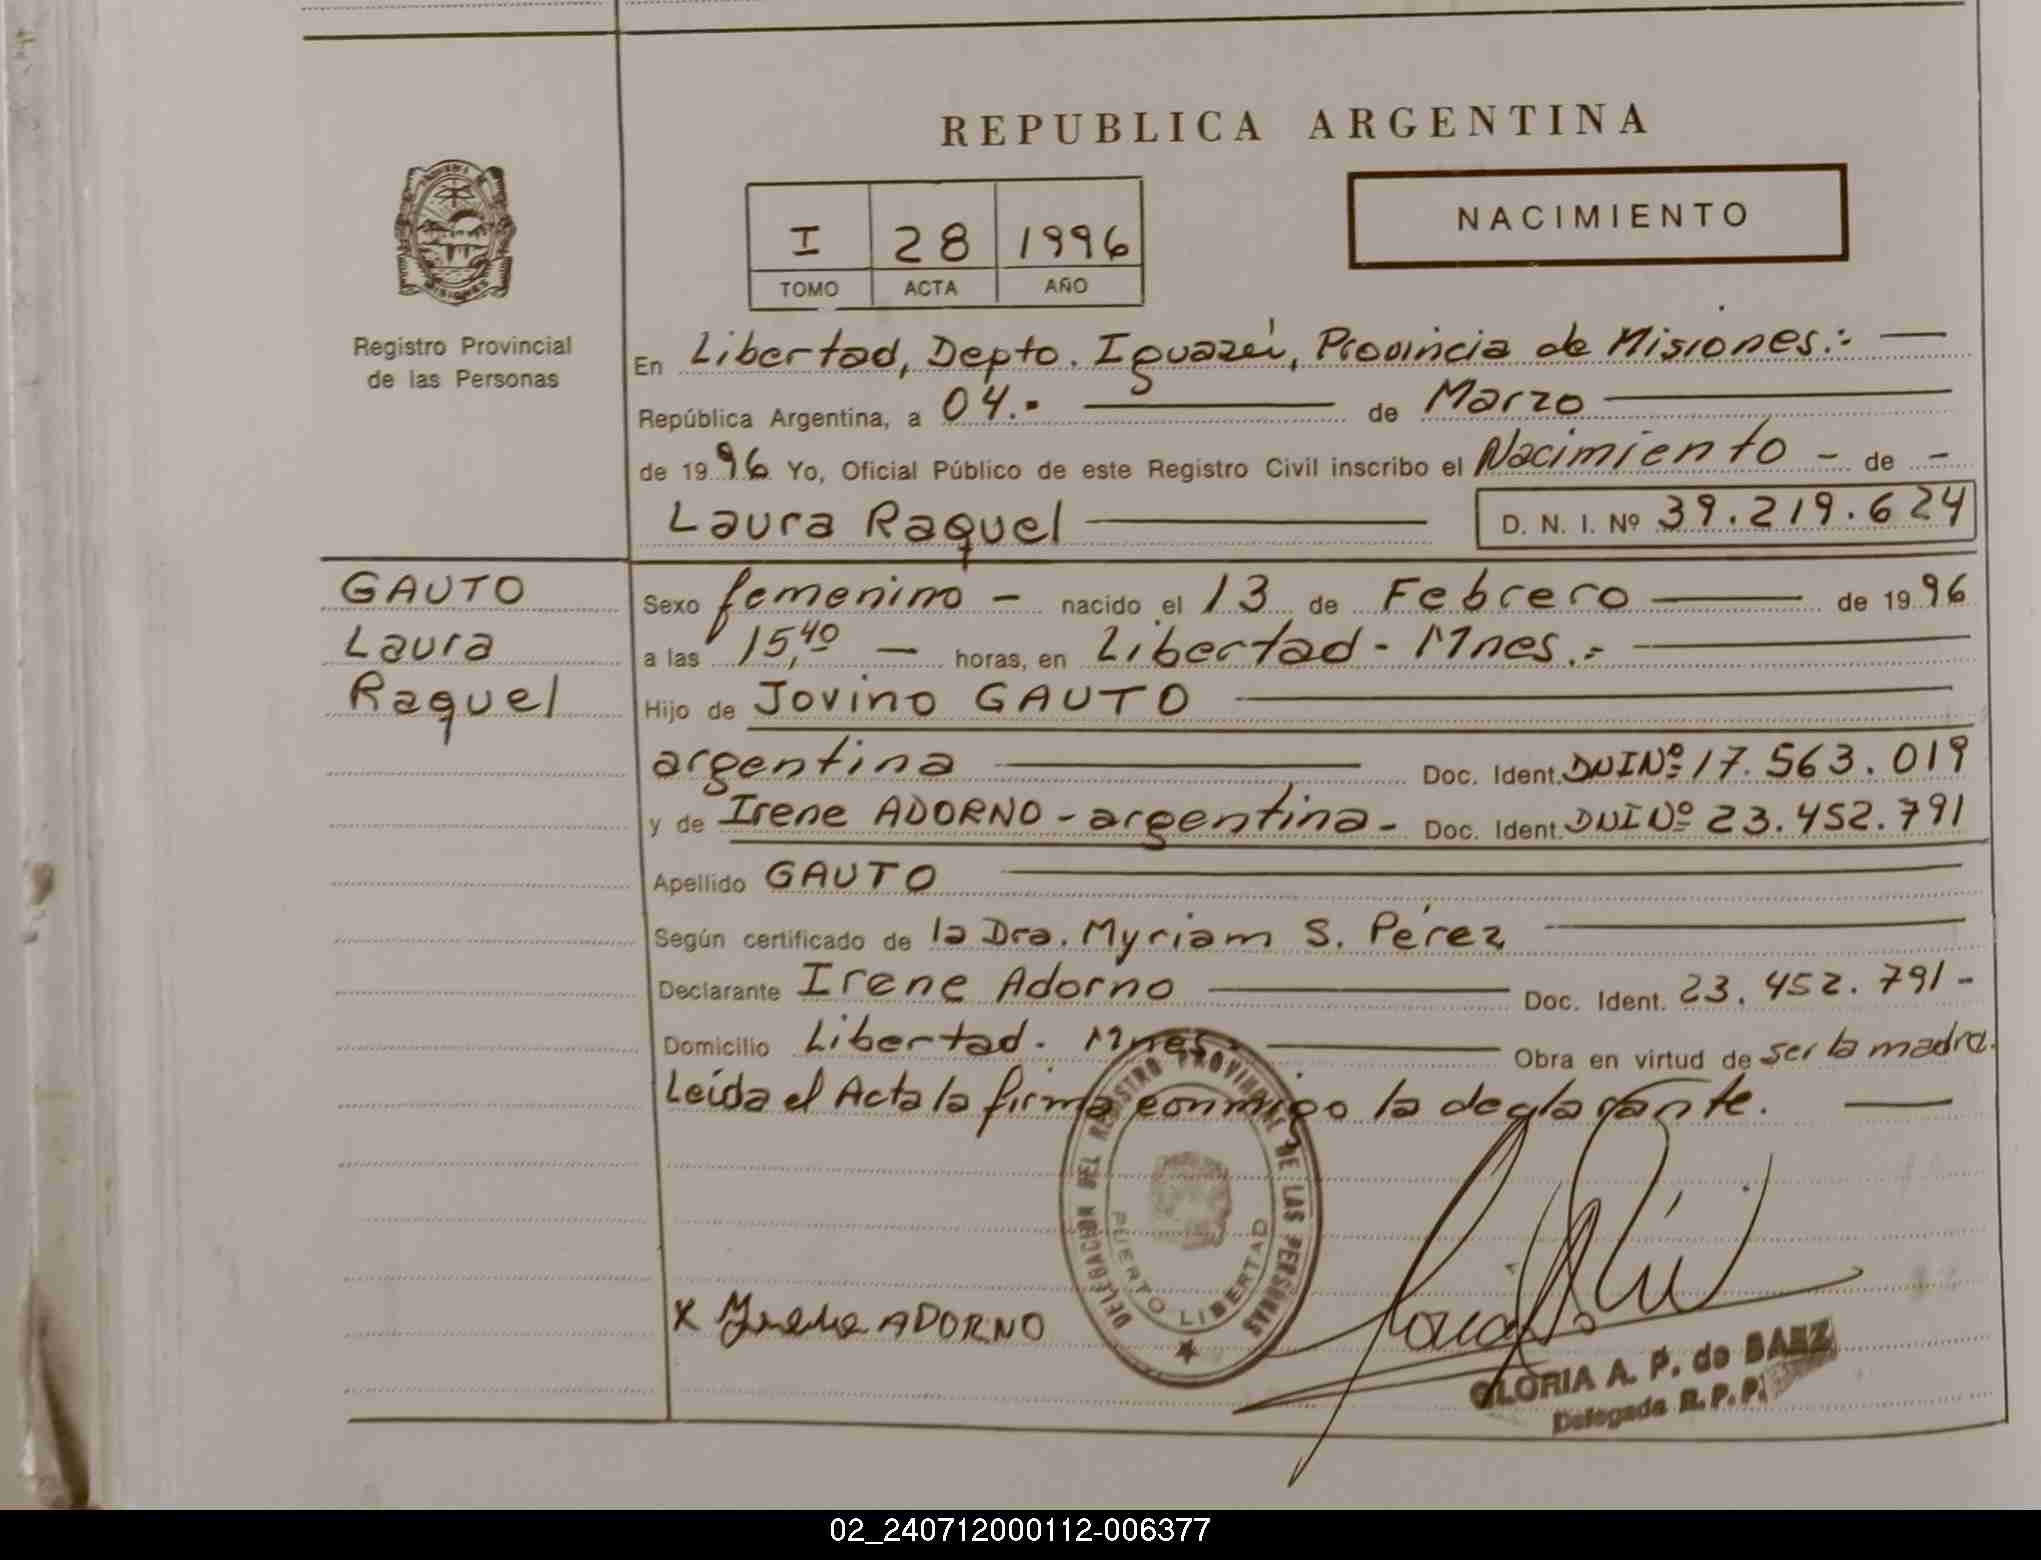 REPUBLICA ARGENTINA
NACIMIENTO
I 28 1996
TOMO ACTA AÑO
Registro Provincial
de las Personas
En Libertad, Depto. Iguazú, Provincia de Misiones.-
República Argentina, a 04.- de Marzo
de 1996 Yo, Oficial Público de este Registro Civil inscribo el Nacimiento - de -
Laura Raquel D. N. I. Nº 39.219.624
GAUTO
Laura
Raquel
Sexo femenino - nacido el 13 de Febrero de 1996
a las 15,40 - horas, en Libertad - Mnes.-
Hijo de Jovino GAUTO
argentina Doc. Ident. DNINº 17.563.019
y de Irene ADORNO - argentina - Doc. Ident. DNINº 23.452.791
Apellido GAUTO
Según certificado de la Dra. Myriam S. Pérez
Declarante Irene Adorno Doc. Ident. 23.452.791-
Domicilio Libertad. Mnes. Obra en virtud de ser la madre.
Leída el Acta la firma conmigo la declarante.
DELEGACION DEL REGISTRO PROVINCIAL DE LAS PERSONAS
PUERTO LIBERTAD
X Irene ADORNO
GLORIA A. P. de BAEZ
Delegada R.P.P.
02_240712000112-006377